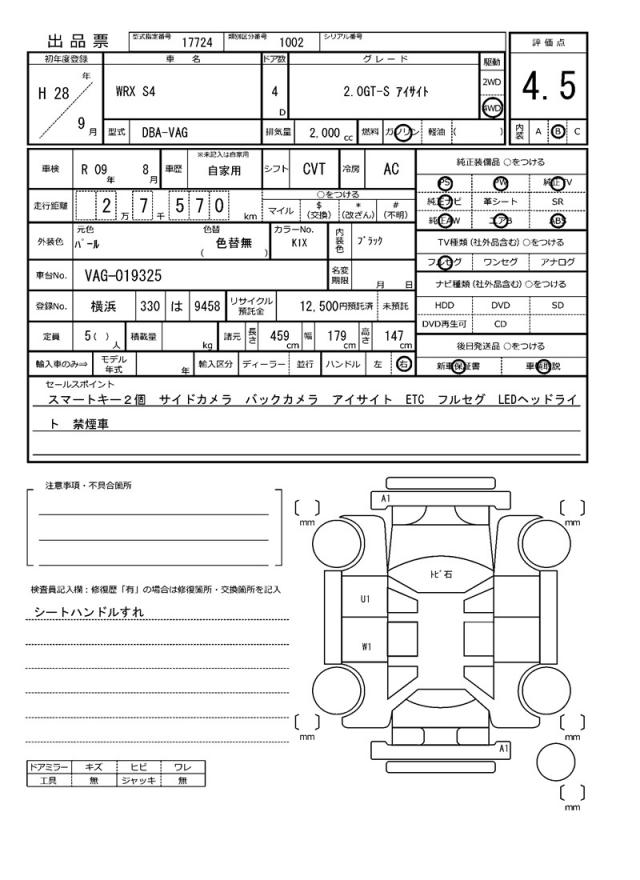 出品票 型式指定番号 17724 類別区分番号 1002 シリアル番号
初年度登録 車 名 ドア数 グレード 駆動 評価点
H 28 年 9 月 WRX S4 4 D 2.0GT-S アイサイト 2WD 4WD 4.5
型式 DBA-VAG 排気量 2,000 cc 燃料 ガソリン 軽油 ( ) 内装 A B C
車検 R 09 年 8 月 車歴 ※未記入は自家用 自家用 シフト CVT 冷房 AC 純正装備品 ○をつける
PS PW 純正TV
走行距離 2 万 7 千 5 7 0 km ○をつける 純正ナビ 革シート SR
マイル $ (交換) * (改ざん) # (不明) 純正AW エアB ABS
外装色 元色 パール 色替 ( 色替無 ) カラーNo. K1X 内装色 ブラック TV種類 (社外品含む) ○をつける
フルセグ ワンセグ アナログ
車台No. VAG-019325 名変期限 月 日 ナビ種類 (社外品含む) ○をつける
登録No. 横浜 330 は 9458 リサイクル預託金 12,500円預託済 未預託 HDD DVD SD
DVD再生可 CD
定員 5 ( ) 人 積載量 kg 諸元 長さ 459 cm 幅 179 cm 高さ 147 cm 後日発送品 ○をつける
輸入車のみ⇒ モデル年式 年 輸入区分 ディーラー 並行 ハンドル 左 右 新車保証書 車輌取説
セールスポイント
スマートキー2個 サイドカメラ バックカメラ アイサイト ETC フルセグ LEDヘッドライ
ト 禁煙車
注意事項・不具合箇所
検査員記入欄：修復歴「有」の場合は修復箇所・交換箇所を記入
シートハンドルすれ
ドアミラー キズ ヒビ ワレ
工具 無 ジャッキ 無
A1
mm mm
トビ石
U1
W1
mm mm
A1
mm